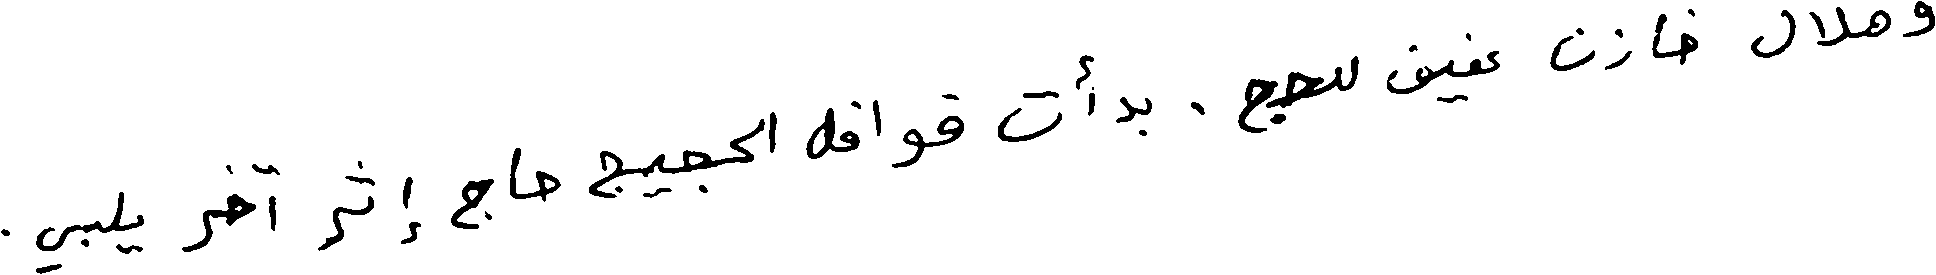 وهلال خازن عفيف للحج . بدأت قوافل الحجيج حاج إثر آخر يلبي .